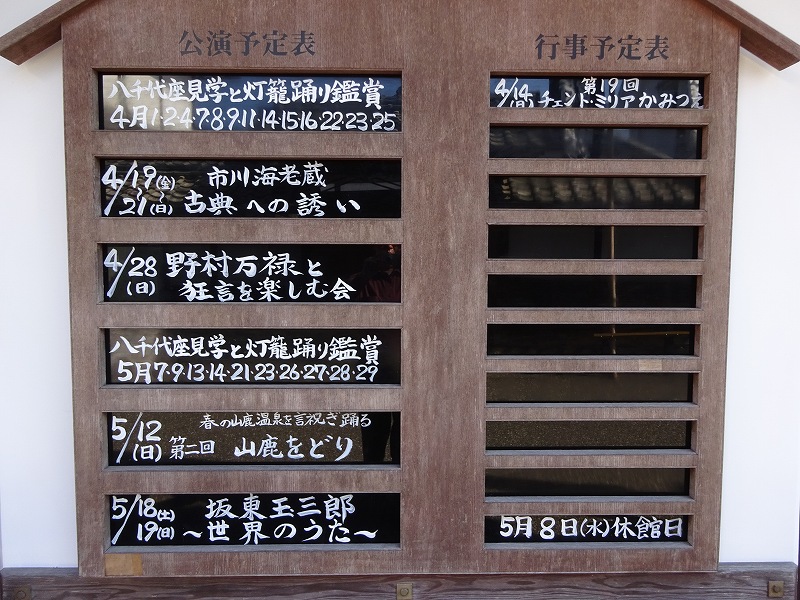 公演予定表
八千代座見学と灯籠踊り鑑賞
4月1・2・4・7・8・9・11・14・15・16・22・23・25
4/19(金)
~21(日)
市川海老蔵
古典への誘い
4/28
(日)
野村万禄と
狂言を楽しむ会
八千代座見学と灯籠踊り鑑賞
5月7・9・13・14・21・23・26・27・28・29
5/12
(日)
春の山鹿温泉を言祝ぎ踊る
第二回 山鹿をどり
5/18(土)
19(日)
坂東玉三郎
~世界のうた~
行事予定表
4/14
(日)
第19回
チェンド・ミリアかみつ
5月8日(水)休館日